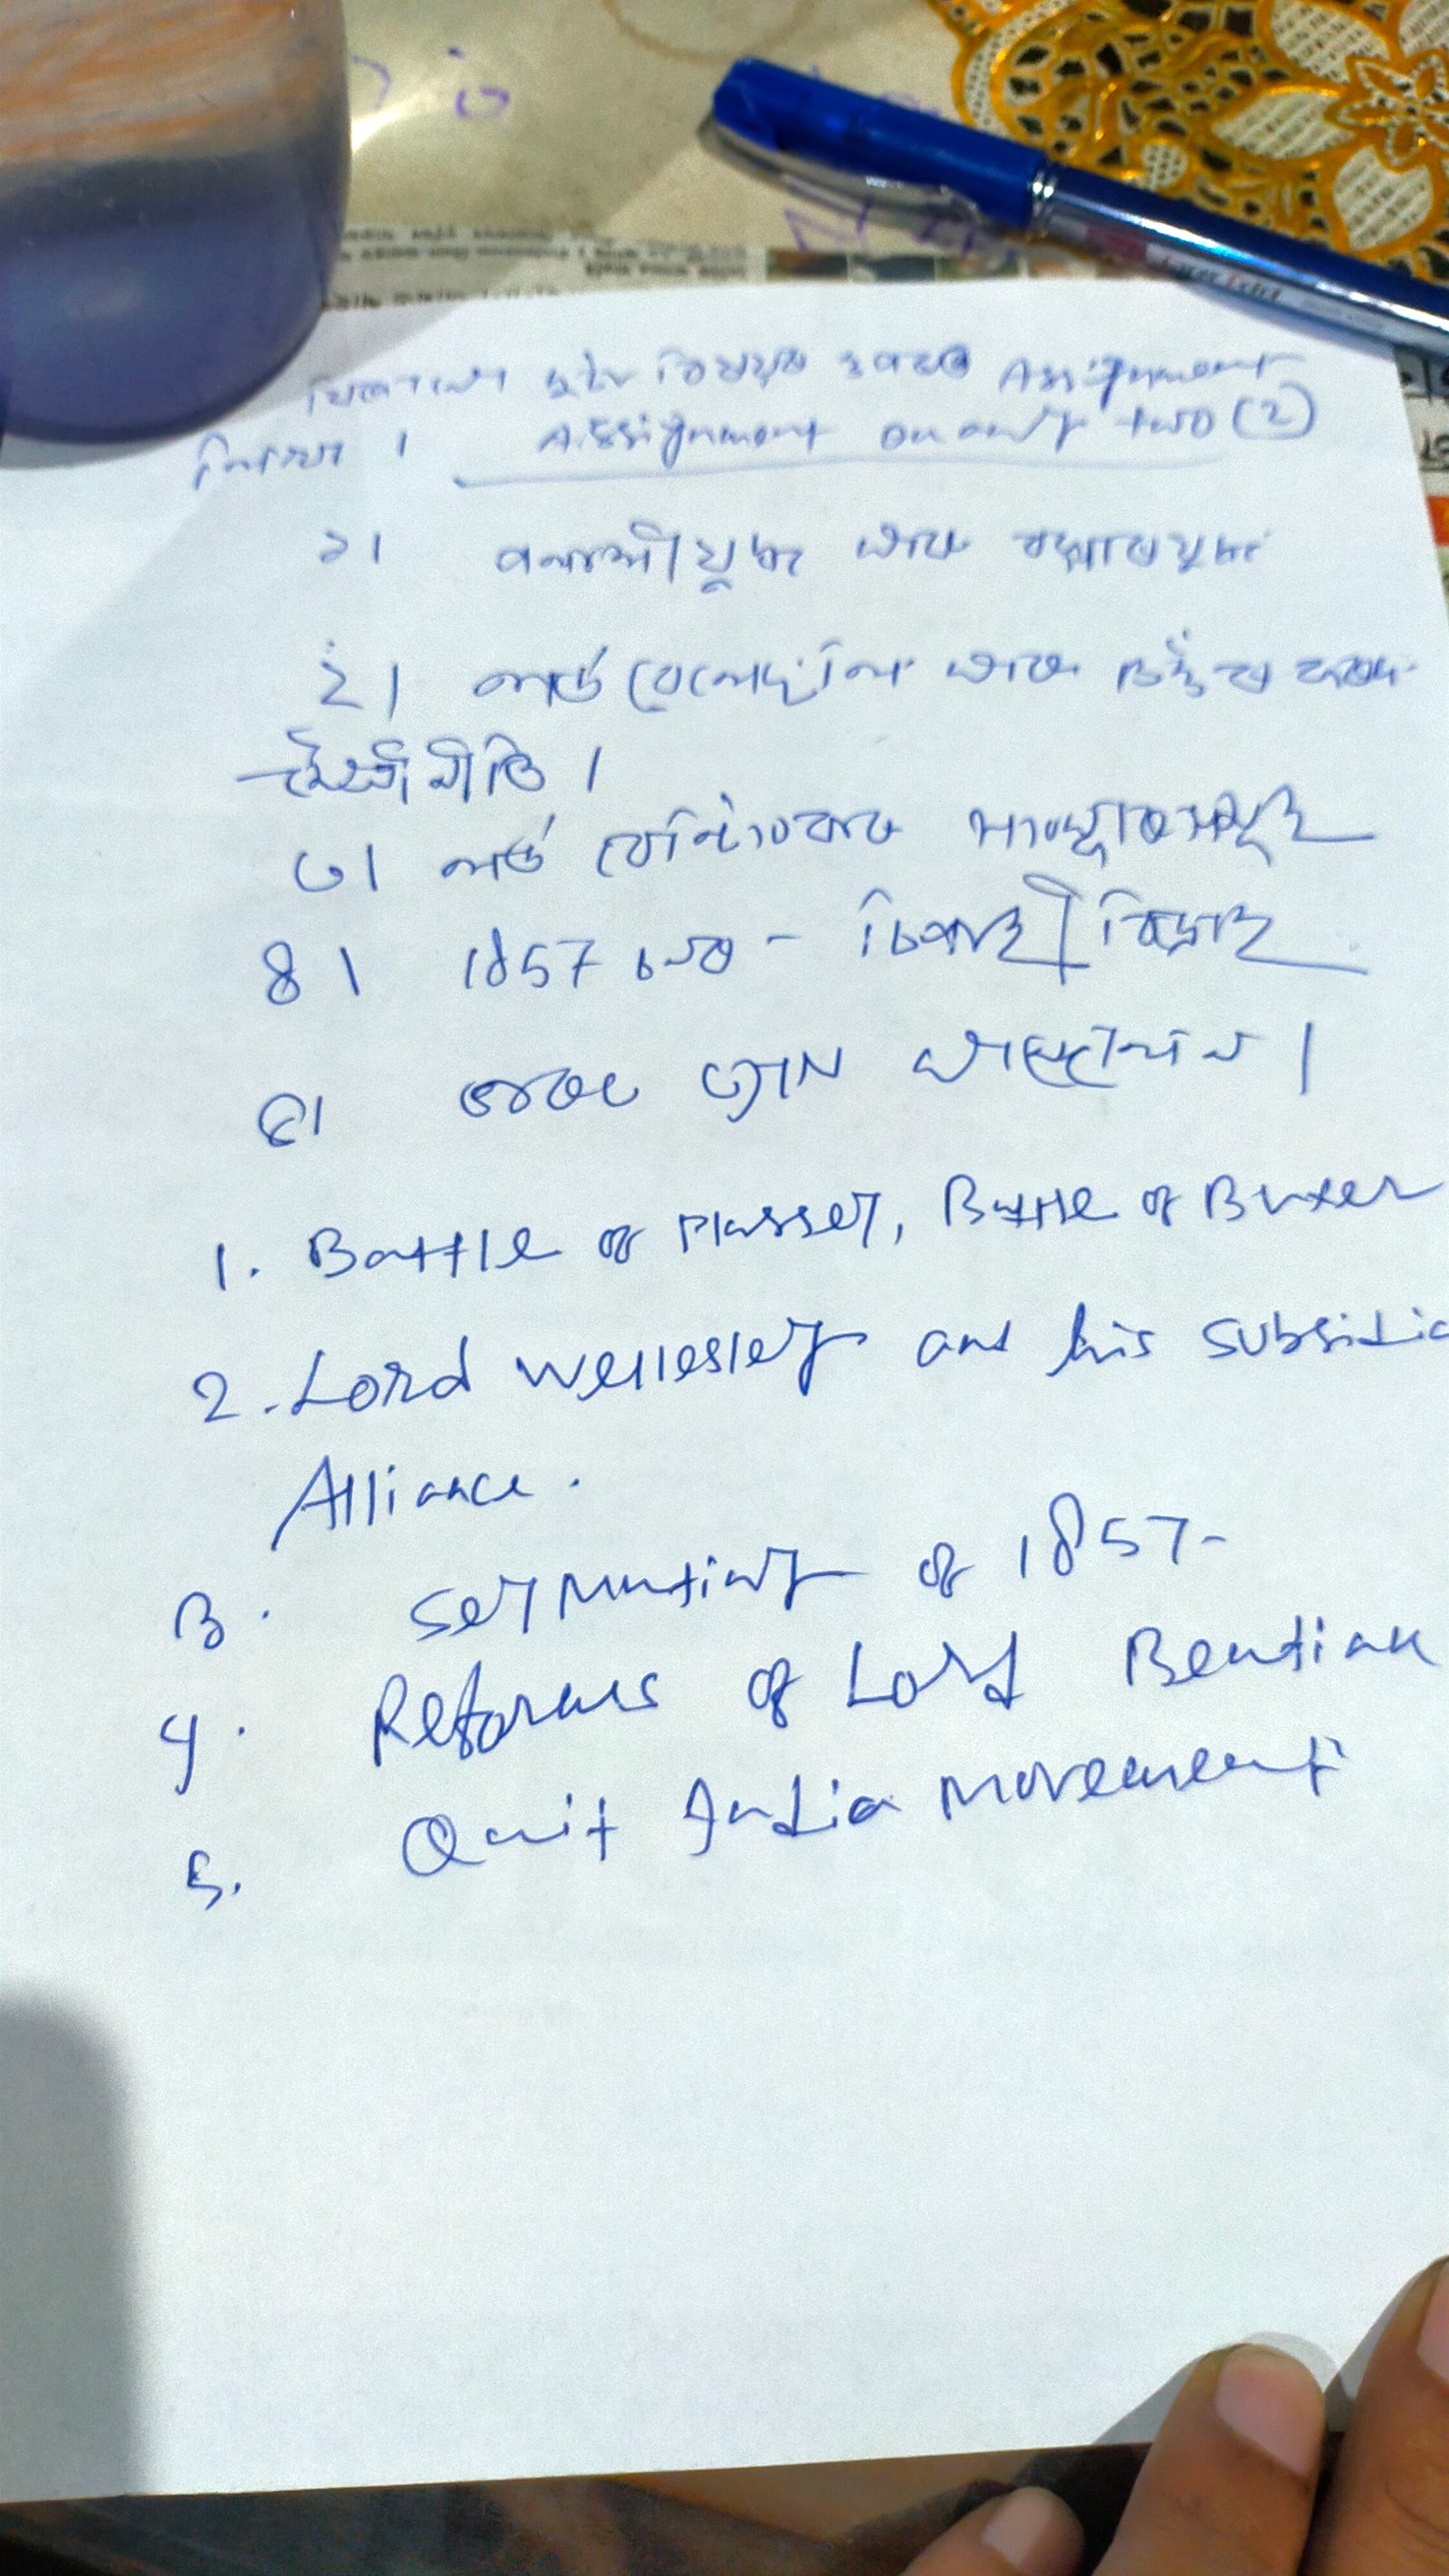 যিকোনো দুটা বিষয়ৰ ওপৰত Assignment
লিখিবা । Assignment on any two (2)
১। পলাশী যুদ্ধ আৰু বক্সাৰ যুদ্ধ
২। লৰ্ড ৱেলেছলি আৰু
মৈত্ৰী নীতি ।
৩। লৰ্ড বেন্টিংকৰ সংস্কাৰসমূহ
৪। 1857 চনৰ - চিপাহী বিদ্ৰোহ
৫। ভাৰত ত্যাগ আন্দোলন ।
1. Battle of Plassey, Battle of Buxer
2. Lord Wellesley and his subsidia
Alliance.
3. Sepy Mutiny of 1857-
4. Reforms of Lord Bentink
5. Quit India Movement